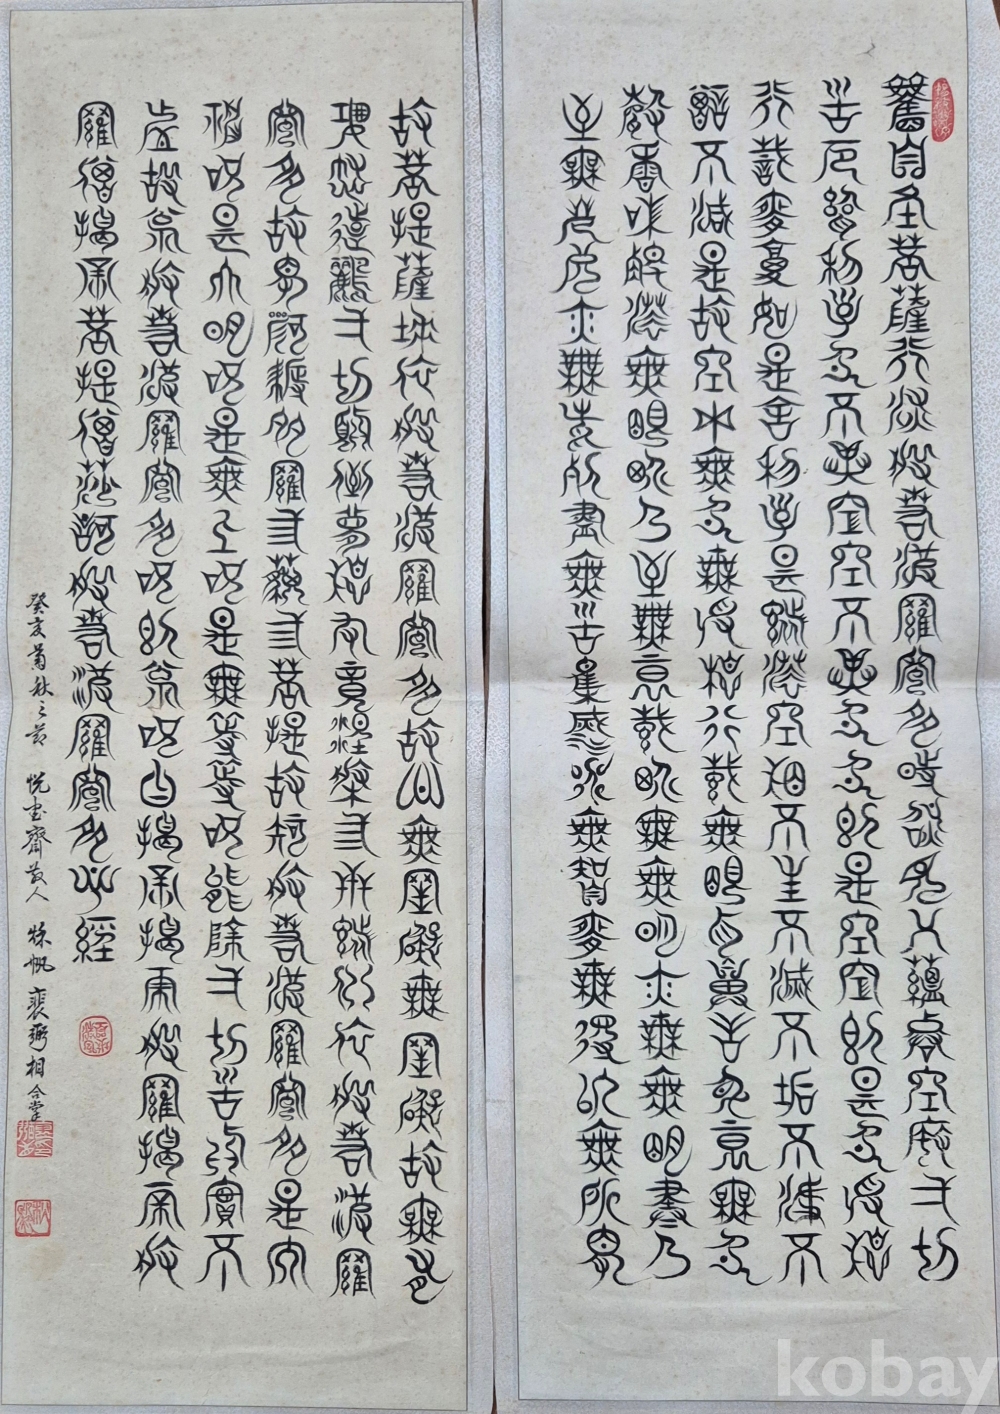 觀自在菩薩行深般若波羅蜜多時照見五蘊皆空度一切
苦厄舍利子色不異空空不異色色即是空空即是色受想
行識亦復如是舍利子是諸法空相不生不滅不垢不淨不
增不減是故空中無色無受想行識無眼耳鼻舌身意無色
聲香味觸法無眼界乃至無意識界無無明亦無無明盡乃
至無老死亦無老死盡無苦集滅道無智亦無得以無所得
故菩提薩埵依般若波羅蜜多故心無罣礙無罣礙故無有
恐怖遠離一切顛倒夢想究竟涅槃三世諸佛依般若波羅
蜜多故得阿耨多羅三藐三菩提故知般若波羅蜜多是大
神呪是大明呪是無上呪是無等等呪能除一切苦真實不
虛故說般若波羅蜜多呪即說呪曰揭帝揭帝般羅揭帝般
羅僧揭帝菩提僧莎訶般若波羅蜜多心經
癸亥菊秋之節 悅書齋散人 帆 裵弼相合掌
kobay